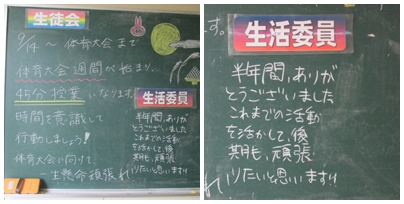 生徒会
9/14 ~ 体育大会まで
体育大会週間が始まり、
45分授業になります。
時間を意識して
行動しましょう!
体育大会に向けて
一生懸命頑張れ
生活委員
半年間、ありが
とうございました
これまでの活動
を活かして、後
期も、頑張
りたいと思います!!
す。
生活委員
半年間、ありが
とうございました
これまでの活動
を活かして、後
期も、頑張
れ
りたいと思います!!